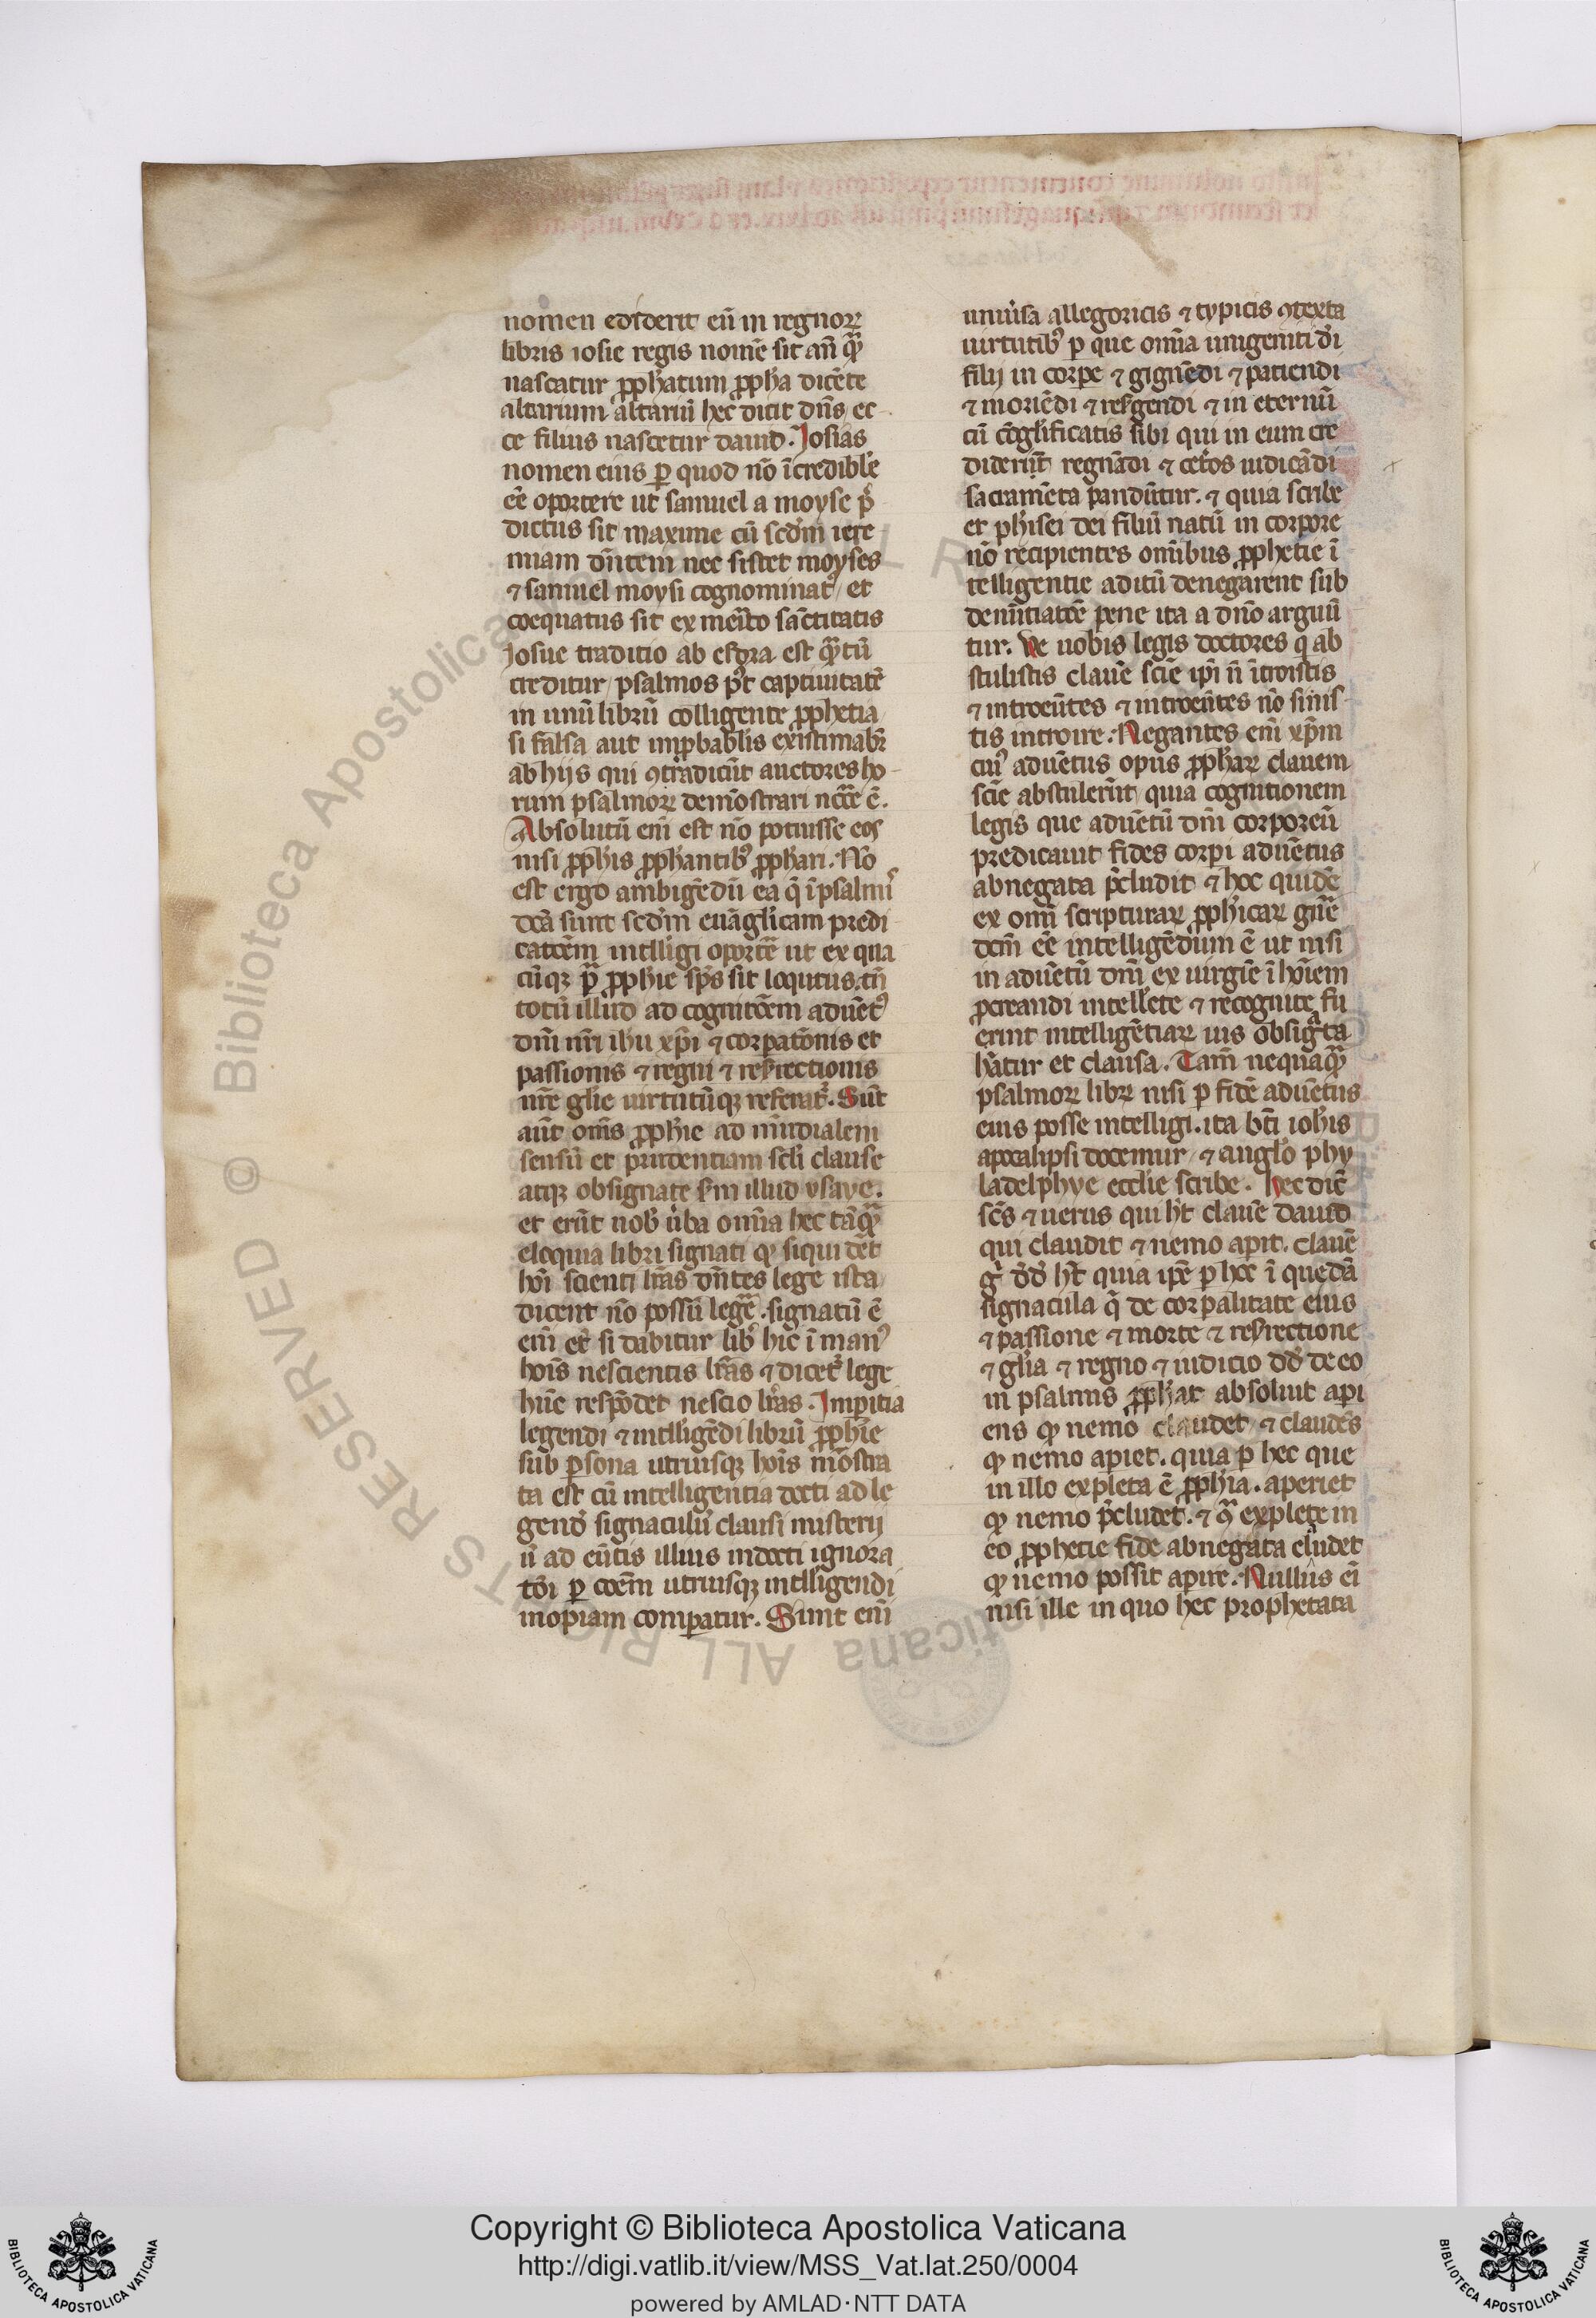 nomen ediderit eū in regnoꝝ
libris iosie regis nomē sit añ qͣꝫ
nascatur ꝓph̄atum ꝓph̄a dicēte
altarium altariū hec dicit dn̄s ec
ce filius nascetur dauid. Josias
nomen eius ꝑ quod nō īcredibile
eē oportere ut samuel a moyse p̄
dictus sit maxime cū scd̄m iere
miam dn̄tem nec sistet moyses
⁊ samuel moysi cognominatᷣ et
coequatus sit ex merito sāctitatis
Josue traditio ab esdra est qͣꝫtū
creditur psalmos pꝰt captiuitatē
in unū librū colligente ꝓphetia
si falsa aut imꝓbabilis existimabᷣ
ab hijs qui ꝯtradicūt auctores ho
rum psalmoꝝ demōstrari ncc̄e ē.
Absolutū eni est nō potuisse eos
nisi ꝓph̄is ꝓph̄antibꝰ ꝓph̄ari. Nō
est ergo ambigēdū ea q̄ ī psalmiˢ
dc̄a sunt scd̄m euāglicam predi
catōem intlligi oportē ut ex qua
cūqꝫ ꝓph̄ie sp̄s sit loqutus tn̄
totū illud ad cognitōem aduētꝰ
dn̄i nr̄i ihu xp̄i ⁊ corꝑatōnis et
passionis ⁊ regni ⁊ resr̄rectionis
nr̄e gl̄ie uirtutūqꝫ referatᷣ. Sūt
aūt om̄s ꝓph̄ie ad mūdialem
sensū et prudentiam scl̄i clause
atqꝫ obsignate sm̄ illud ysaye.
et erūt nob̄ ūba omīa hec tāqͣꝫ
eloquia libri signati ꝙ siqui dēt
hōi scienti lr̄as dn̄tes lege ista
dicent nō possū legē. signatū ē
eni et si dabitur libꝰ hic ī manꝰ
hois nescientis lr̄as ⁊ dicetᷣ lege
hūc respōdet nescio lr̄as. Imperitia
legendi ⁊ intlligēdi librū ꝓph̄ie
sub ꝑsona utriusqꝫ hoīs mōstra
ta est cū intelligentia docti ad le
gend̄ signaculū clausi misterij
ū ad eūtis illius indocti ignora
tōi ꝑ coēm utriusqꝫ intlligendi
inopiam comꝑatur. Sunt eni
uniūsa allegoricis ⁊ typicis ꝯtexta
uirtutibꝰ ꝑ que omīa unigeniti d̄i
filij in corꝑe ⁊ gignēdi ⁊ patiendi
⁊ moriēdi ⁊ resᷣgendi ⁊ in eternū
cū cōglificatis sibi qui in eum cre
diderūt regnādi ⁊ cetos iudicādi
sacramēta pandūtur. ⁊ quia scribe
et ph̄isei dei filiū natū in corpore
nō recipientes omībus ꝓphetie ī
telligentie aditū denegarent sub
denūtiatōe pene ita a dn̄o arguū
tur. Ve uobis legis doctores q̄ ab
stulistis clauē scīe ip̄i n̄ ītroistis
⁊ introeūtes ⁊ introeūtes nō sinis
tis introire. Negantes eni xp̄m
cuiꝰ aduētus opus ꝓph̄aꝝ clauem
scīe abstulerūt quia cognitionem
legis que aduētū dn̄i corporeū
predicauit fides corpi aduētus
abnegata p̄cludit ⁊ hoc quidē
ex omī scripturaꝝ ꝓph̄icaꝝ gn̄e
dc̄m eē intelligēdum ē ut nisi
in aduētū dn̄i ex uirgīe ī hoīem
ꝓcreandi intellecte ⁊ recognite fu
erint intelligētiaꝝ uis obsigͣta
hātur et clausa. Tam̄ nequaqͣꝫ
psalmoꝝ libꝝ nisi ꝑ fidē aduētus
eius posse intelligi. ita bt̄i ioh̄is
apocalipsi docemur ⁊ anglo phy
ladelphye ecclīe scribe. hec dic̄
sc̄s ⁊ uerus qui h̄t clauē dauid
qui claudit ⁊ nemo aꝑit. clauē
gͥ dd̄ h̄t quia ip̄e ꝑ hec ī quedā
signacula q̄ de corꝑalitate eius
⁊ passione ⁊ morte ⁊ resr̄rectione
⁊ gl̄ia ⁊ regno ⁊ iudicio dd̄ de eo
in psalmis ꝓph̄at absoluit aꝑi
ens ꝙ nemo claudet ⁊ claudēs
ꝙ nemo aꝑiet. quia ꝑ hec que
in illo expleta ē ꝓph̄ia. aperiet
ꝙ nemo p̄cludet. ⁊ qͣ explete in
eo ꝓphetie fide abnegata cludet
ꝙ nemo possit aꝑire. Nullus ēi
nisi ille in quo hec prophetata
© Biblioteca Apostolica Vaticana ALL RIGHTS RESERVED
Copyright © Biblioteca Apostolica Vaticana
http://digi.vatlib.it/view/MSS_Vat.lat.250/0004
powered by AMLAD·NTT DATA
BIBLIOTECA APOSTOLICA VATICANA
BIBLIOTECA APOSTOLICA VATICANA